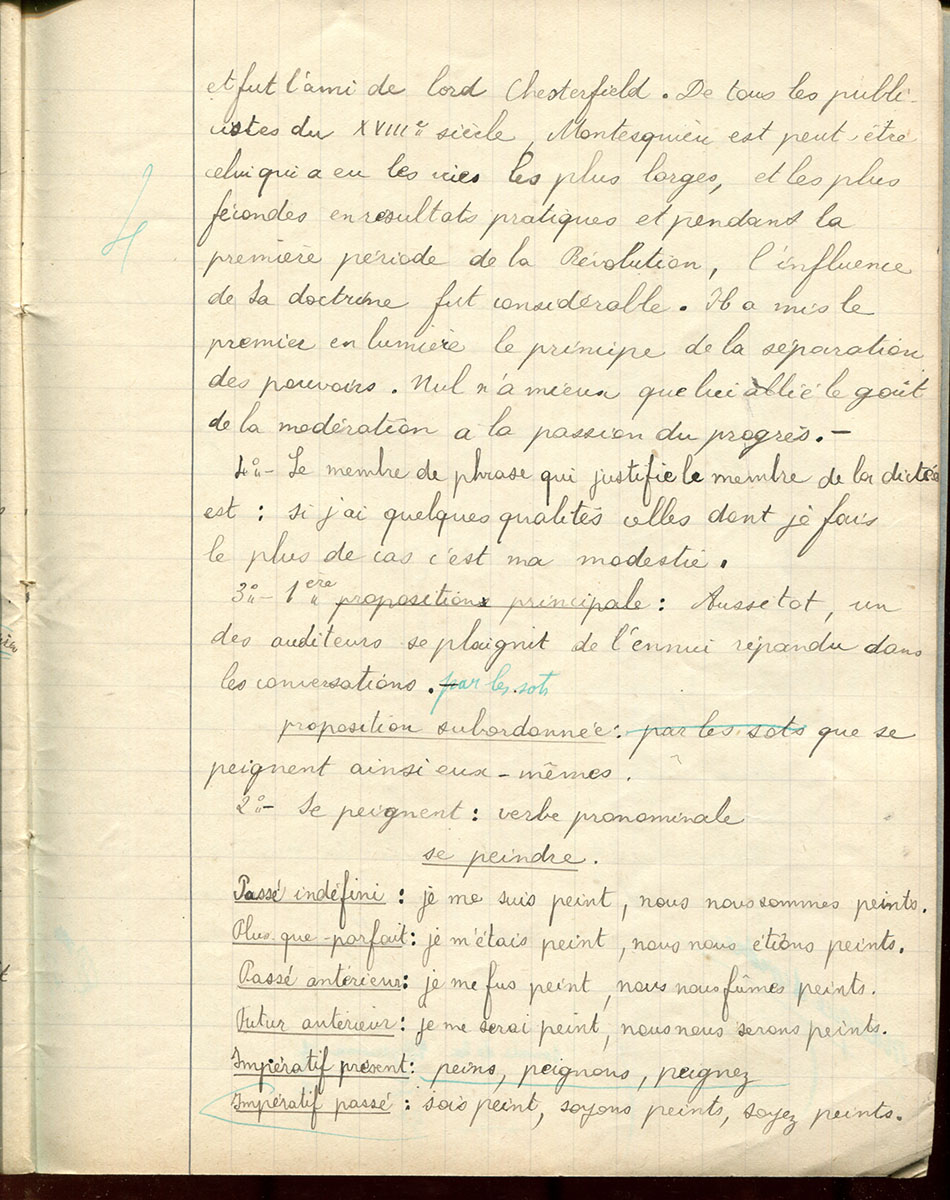 et fut l'ami de lord Chesterfield. De tous les publi-
cistes du XVIIIe siècle, Montesquieu est peut-être
celui qui a eu les vues les plus larges, et les plus
fécondes en résultats pratiques et pendant la
4
première période de la Révolution, l'influence
de sa doctrine fut considérable. Il a mis le
premier en lumière le principe de la séparation
des pouvoirs. Nul n'a mieux que lui allié le goût
de la modération a la passion du progrès. -
4° - Le membre de phrase qui justifie le membre de la dictée
est : si j'ai quelques qualités celles dont je fais
le plus de cas c'est ma modestie.
3° - 1ère proposition principale : Aussitot, un
des auditeurs se plaignit de l'ennui répandu dans
les conversations. par les sots
proposition subordonnée : par les sots que se
peignent ainsi eux-mêmes.
2° - Se peignent : verbe pronominale
se peindre.
Passé indéfini : je me suis peint, nous nous sommes peints.
Plus que-parfait : je m'étais peint, nous nous étions peints.
Passé antérieur : je me fus peint, nous nous fûmes peints.
Futur antérieur : je me serai peint, nous nous serons peints.
Impératif présent : peins, peignons, peignez
Impératif passé : sois peint, soyons peints, soyez peints.